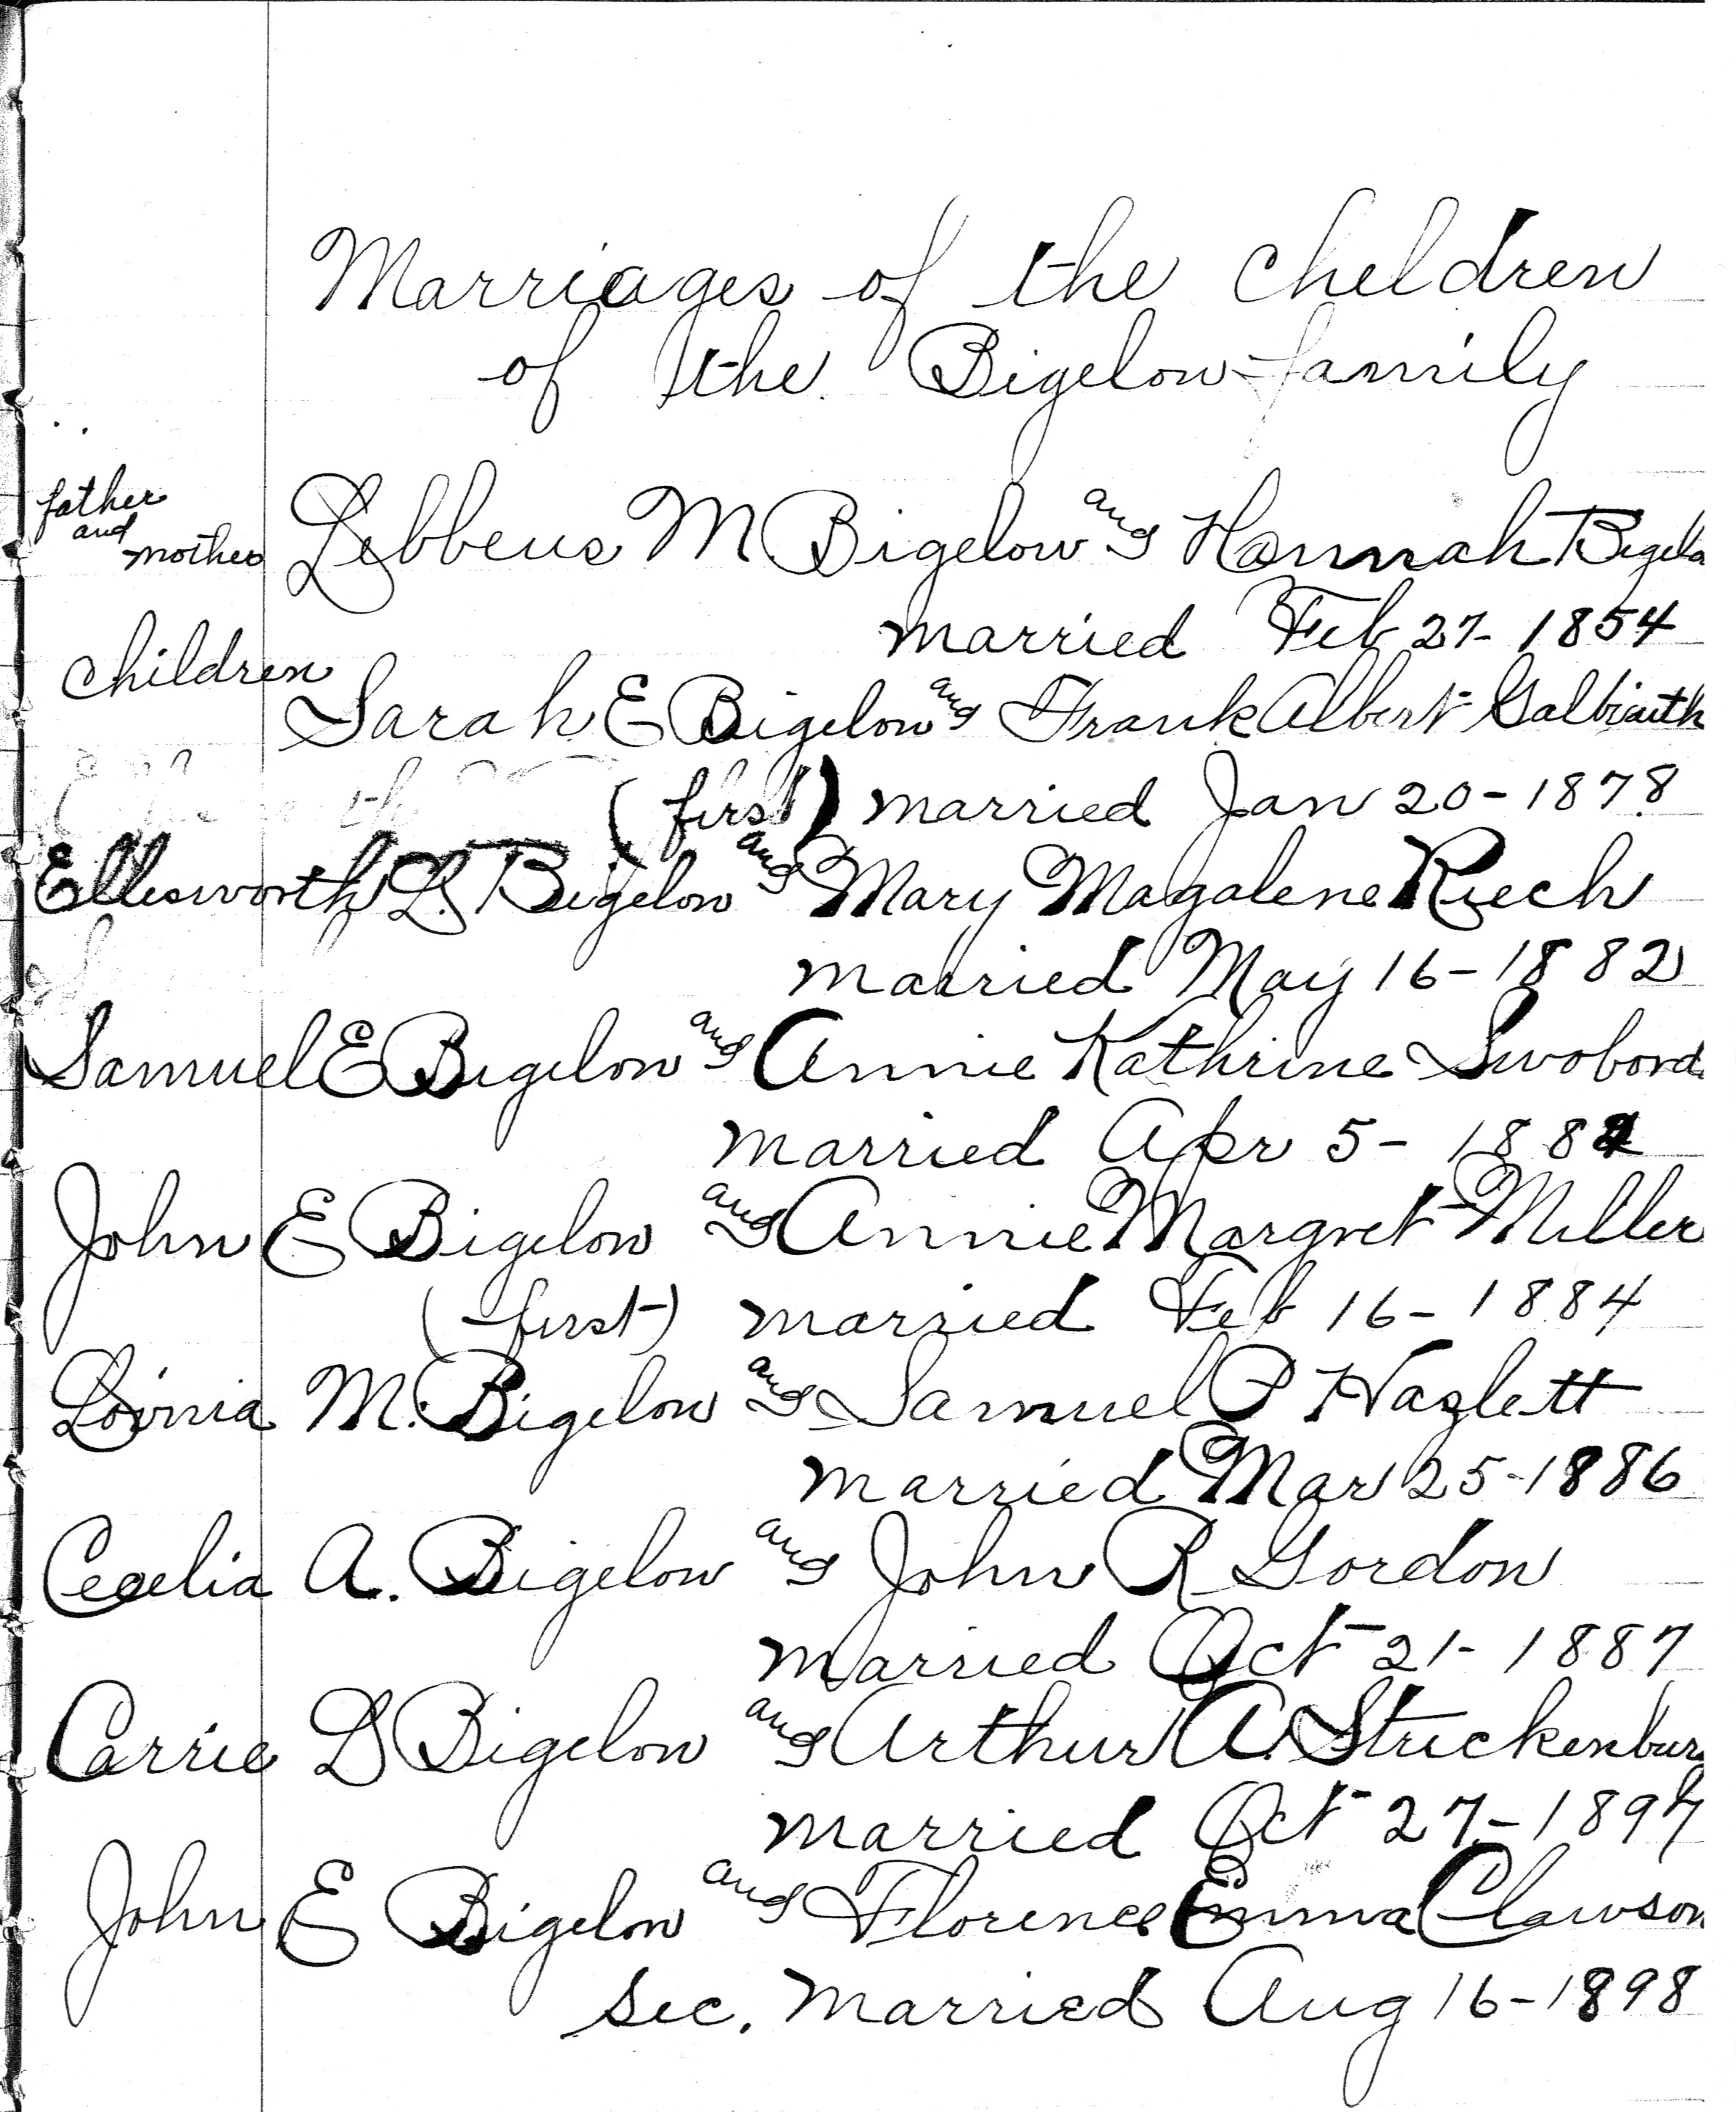 Marriages of the children
of the Bigelow family
father
and
mother
Lebbeus M Bigelow and Hannah Bigelo
married Feb 27-1854
children
Sarah E Bigelow and Frank Albert Galbraith
(first) married Jan 20-1878
Ellesworth L. Bigelow and Mary Magalene Riech
married May 16-1882
Samuel E Bigelow and Annie Kathrine Swoboda
married Apr 5-188
John E Bigelow and Annie Margret Miller
(first) married Feb 16-1884
Lovinia M. Bigelow and Samuel P Hazlett
married Mar 25-1886
Cecelia A. Bigelow and John R Gordon
married Oct 21-1887
Carrie L Bigelow and Arthur A. Strickenburg
married Oct 27-1897
John E Bigelow and Florence Emma Clawson
sec. married Aug 16-1898